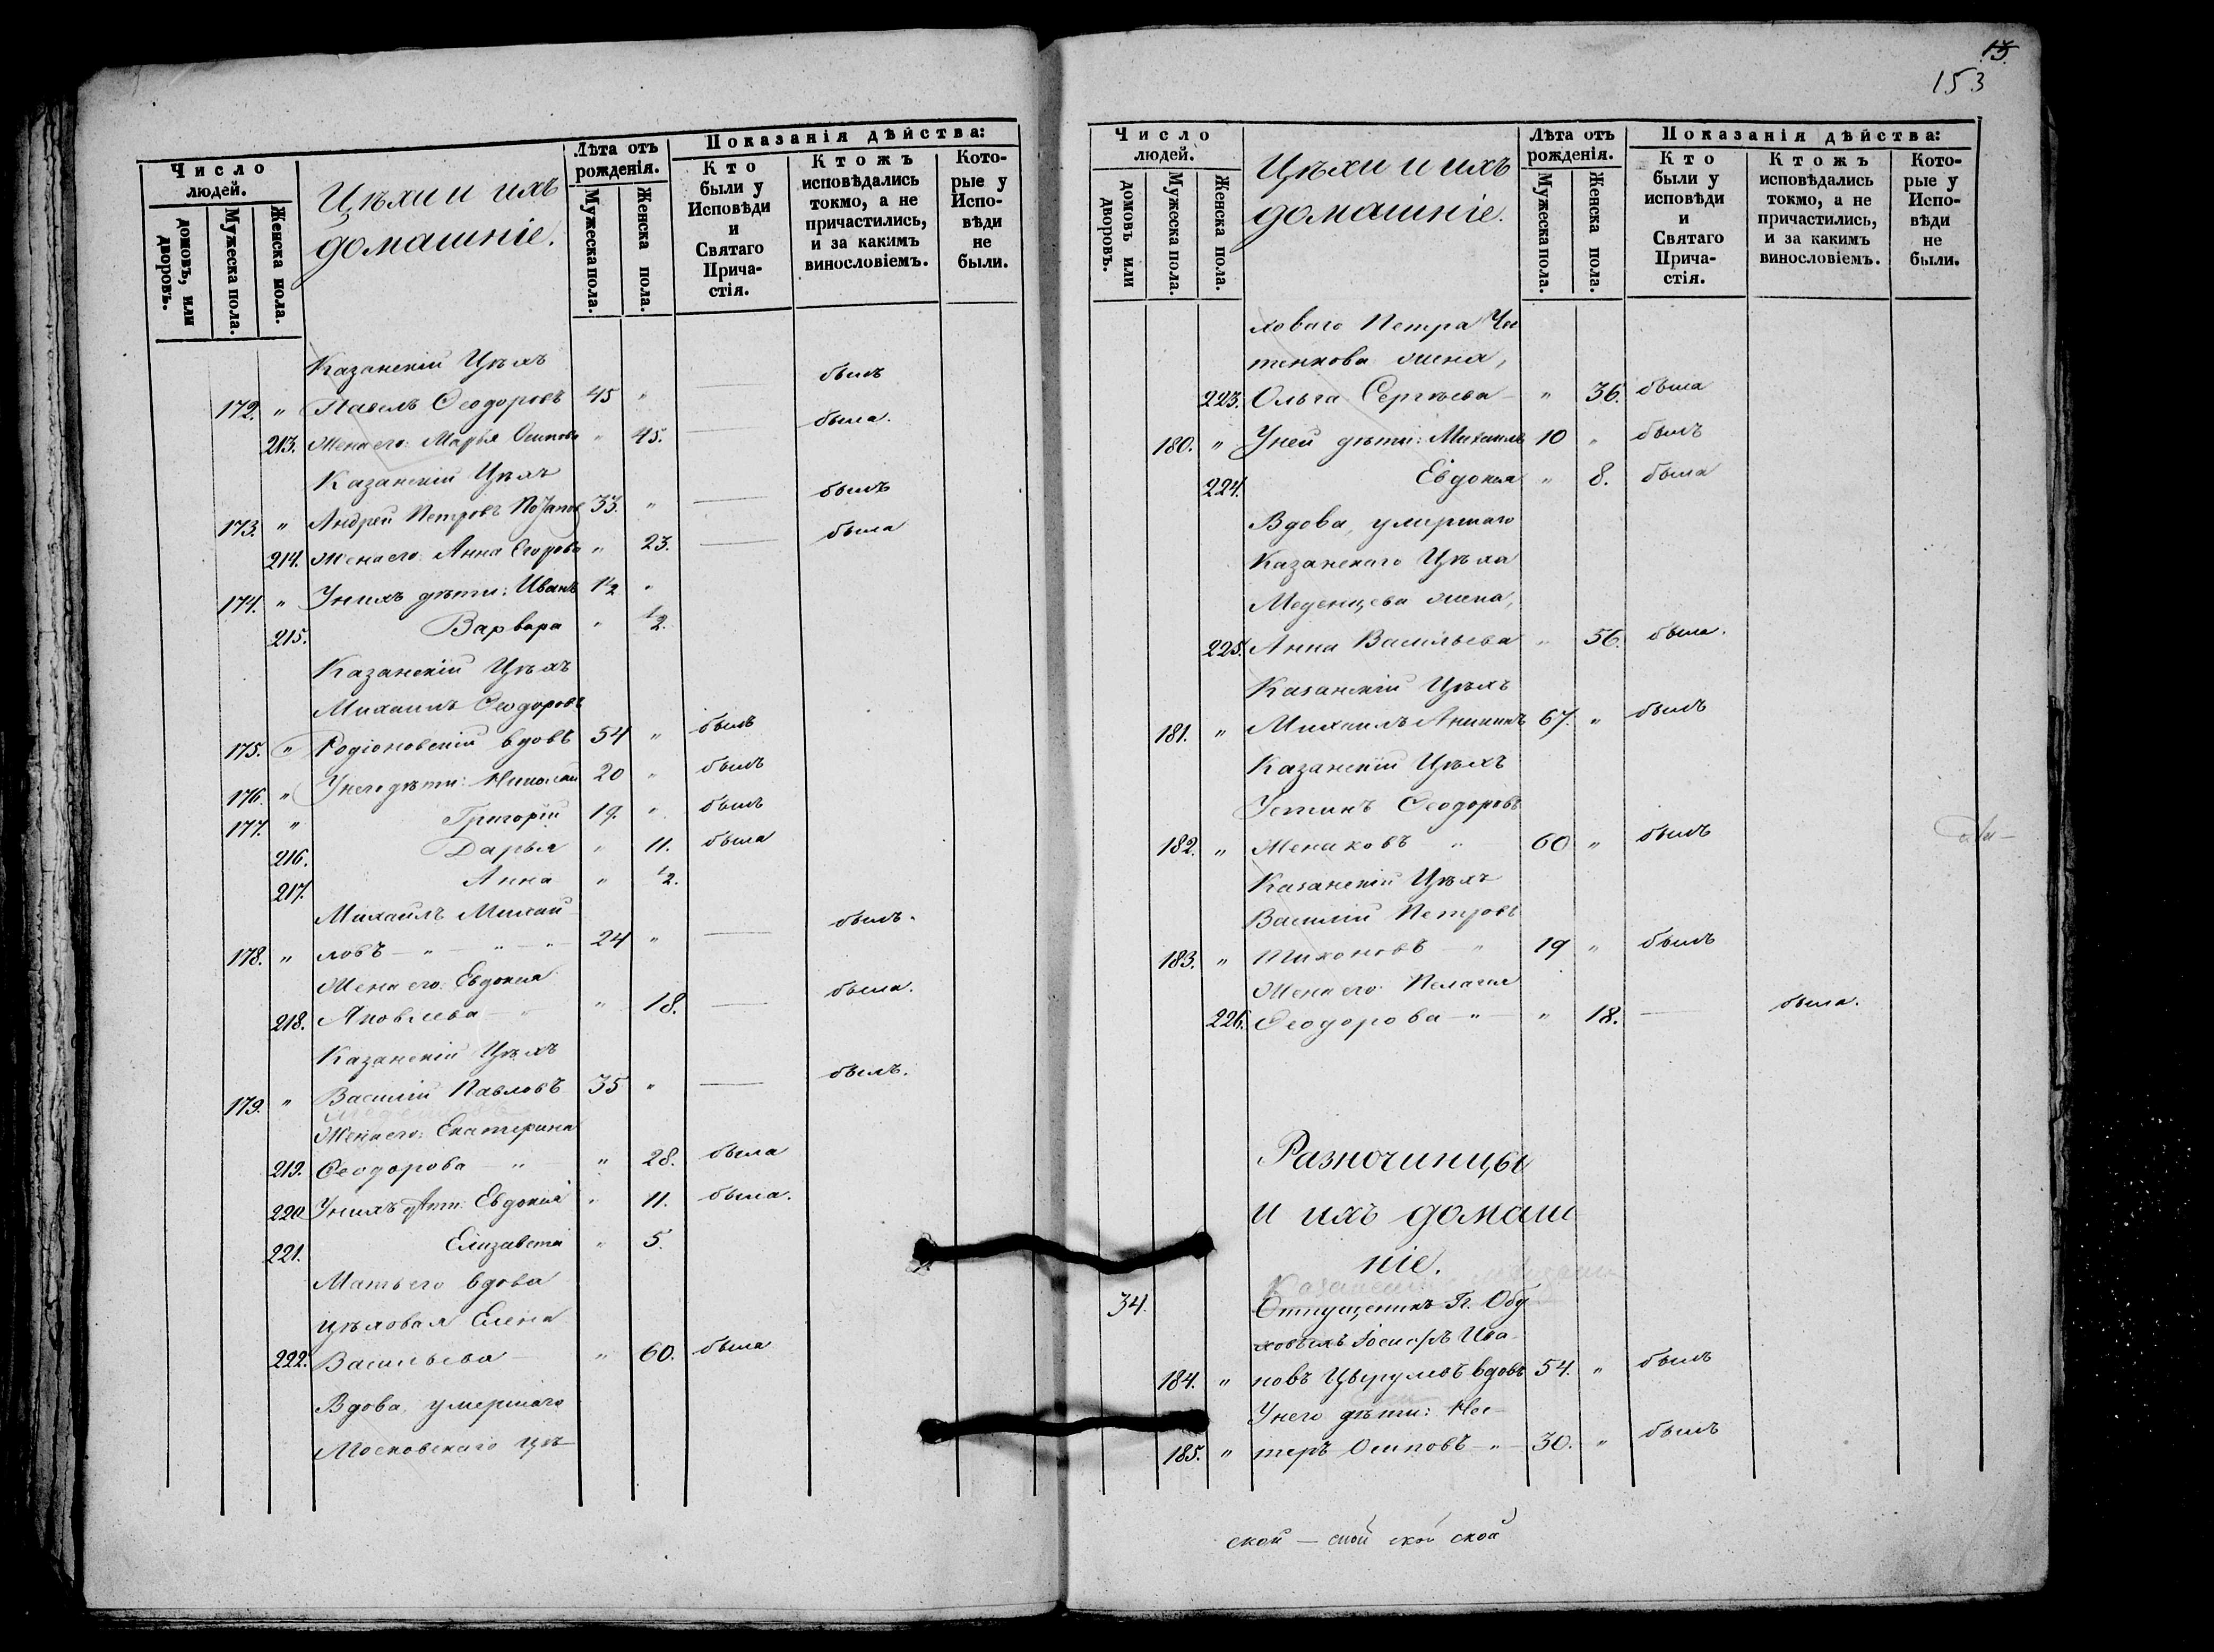 Число людей.
домовъ, или дворовъ.
Мужеска пола.
Женска пола.
Цѣхи и ихъ
домашніе.
Лѣта отъ рожденія.
Мужеска пола.
Женска пола.
Показанія дѣйства:
Кто были у Исповѣди и Святаго Прича-стія.
Ктожъ исповѣдались токмо, а не причастились, и за какимъ винословіемъ.
Кото-рые у Испо-вѣди не были.
Казанскій Цѣхъ
172. " Павелъ Ѳеодоровъ 45 " былъ
213. Жена его: Марья Осипова " 45. была.
Казанскій Цѣхъ
173. " Андрей Петровъ 33. " былъ
214. Жена его: Анна Егорова " 23. была
174. " У нихъ дѣти: Иванъ 1½ "
215. Варвара " ½.
Казанскій Цѣхъ
Михаилъ Ѳеодоровъ
175. " Родіоновскій вдовъ 54 " былъ
176. " У него дѣти: Николай 20 " былъ
177. " Григорій 19. " былъ
216. Дарья " 11. была
217. Анна " ½.
Михаилъ Михай
178. " ловъ — " — " — " 24 " былъ.
Жена его: Евдокія
218. Яковлева — " " 18. была.
Казанскій Цѣхъ
179. " Василій Павловъ 35 " былъ.
Жена его: Екатерина
219. Ѳеодорова — " " 28. была
220. У нихъ дѣти: Евдокія " 11. была.
221. Елизавета " 5.
Мать его вдова
цѣховая Елена
222. Васильева — " 60. была
Вдова, умершаго
Московскаго цѣ-
153
Число людей.
домовъ или дворовъ.
Мужеска пола.
Женска пола.
Цѣхи и ихъ
домашніе.
Лѣта отъ рожденія.
Мужеска пола.
Женска пола.
Показанія дѣйства:
Кто были у исповѣди и Святаго Прича-стія.
Ктожъ исповѣдались токмо, а не причастились, и за какимъ винословіемъ.
Кото-рые у Испо-вѣди не были.
ховаго Петра
жена,
223. Ольга Сергѣева — " 36. была
180. " У ней дѣти: Михаилъ 10 " былъ
224. Евдокія " 8. была
Вдова, умершаго
Казанскаго Цѣха
Меденцева жена,
225. Анна Васильева " 56. была.
Казанскій Цѣхъ
181. " Михаилъ Аникинъ 67. " былъ
Казанскій Цѣхъ
Устинъ Ѳеодоровъ
182. " Менаковъ " 60 " былъ
Казанскій Цѣхъ
Василій Петровъ
183. " Тихоновъ — " 19 " былъ
Жена его: Пелагія
226. Ѳеодорова — " — " 18. — была.
Разночинцы
и ихъ домаш
ніе.
34. Отпущеникъ Гг.
Іосифъ Ива-
184. " новъ вдовъ 54. " былъ
У него дѣти: Нес-
185. " теръ Осиповъ — " — 30. " былъ
ской — ской ской ской